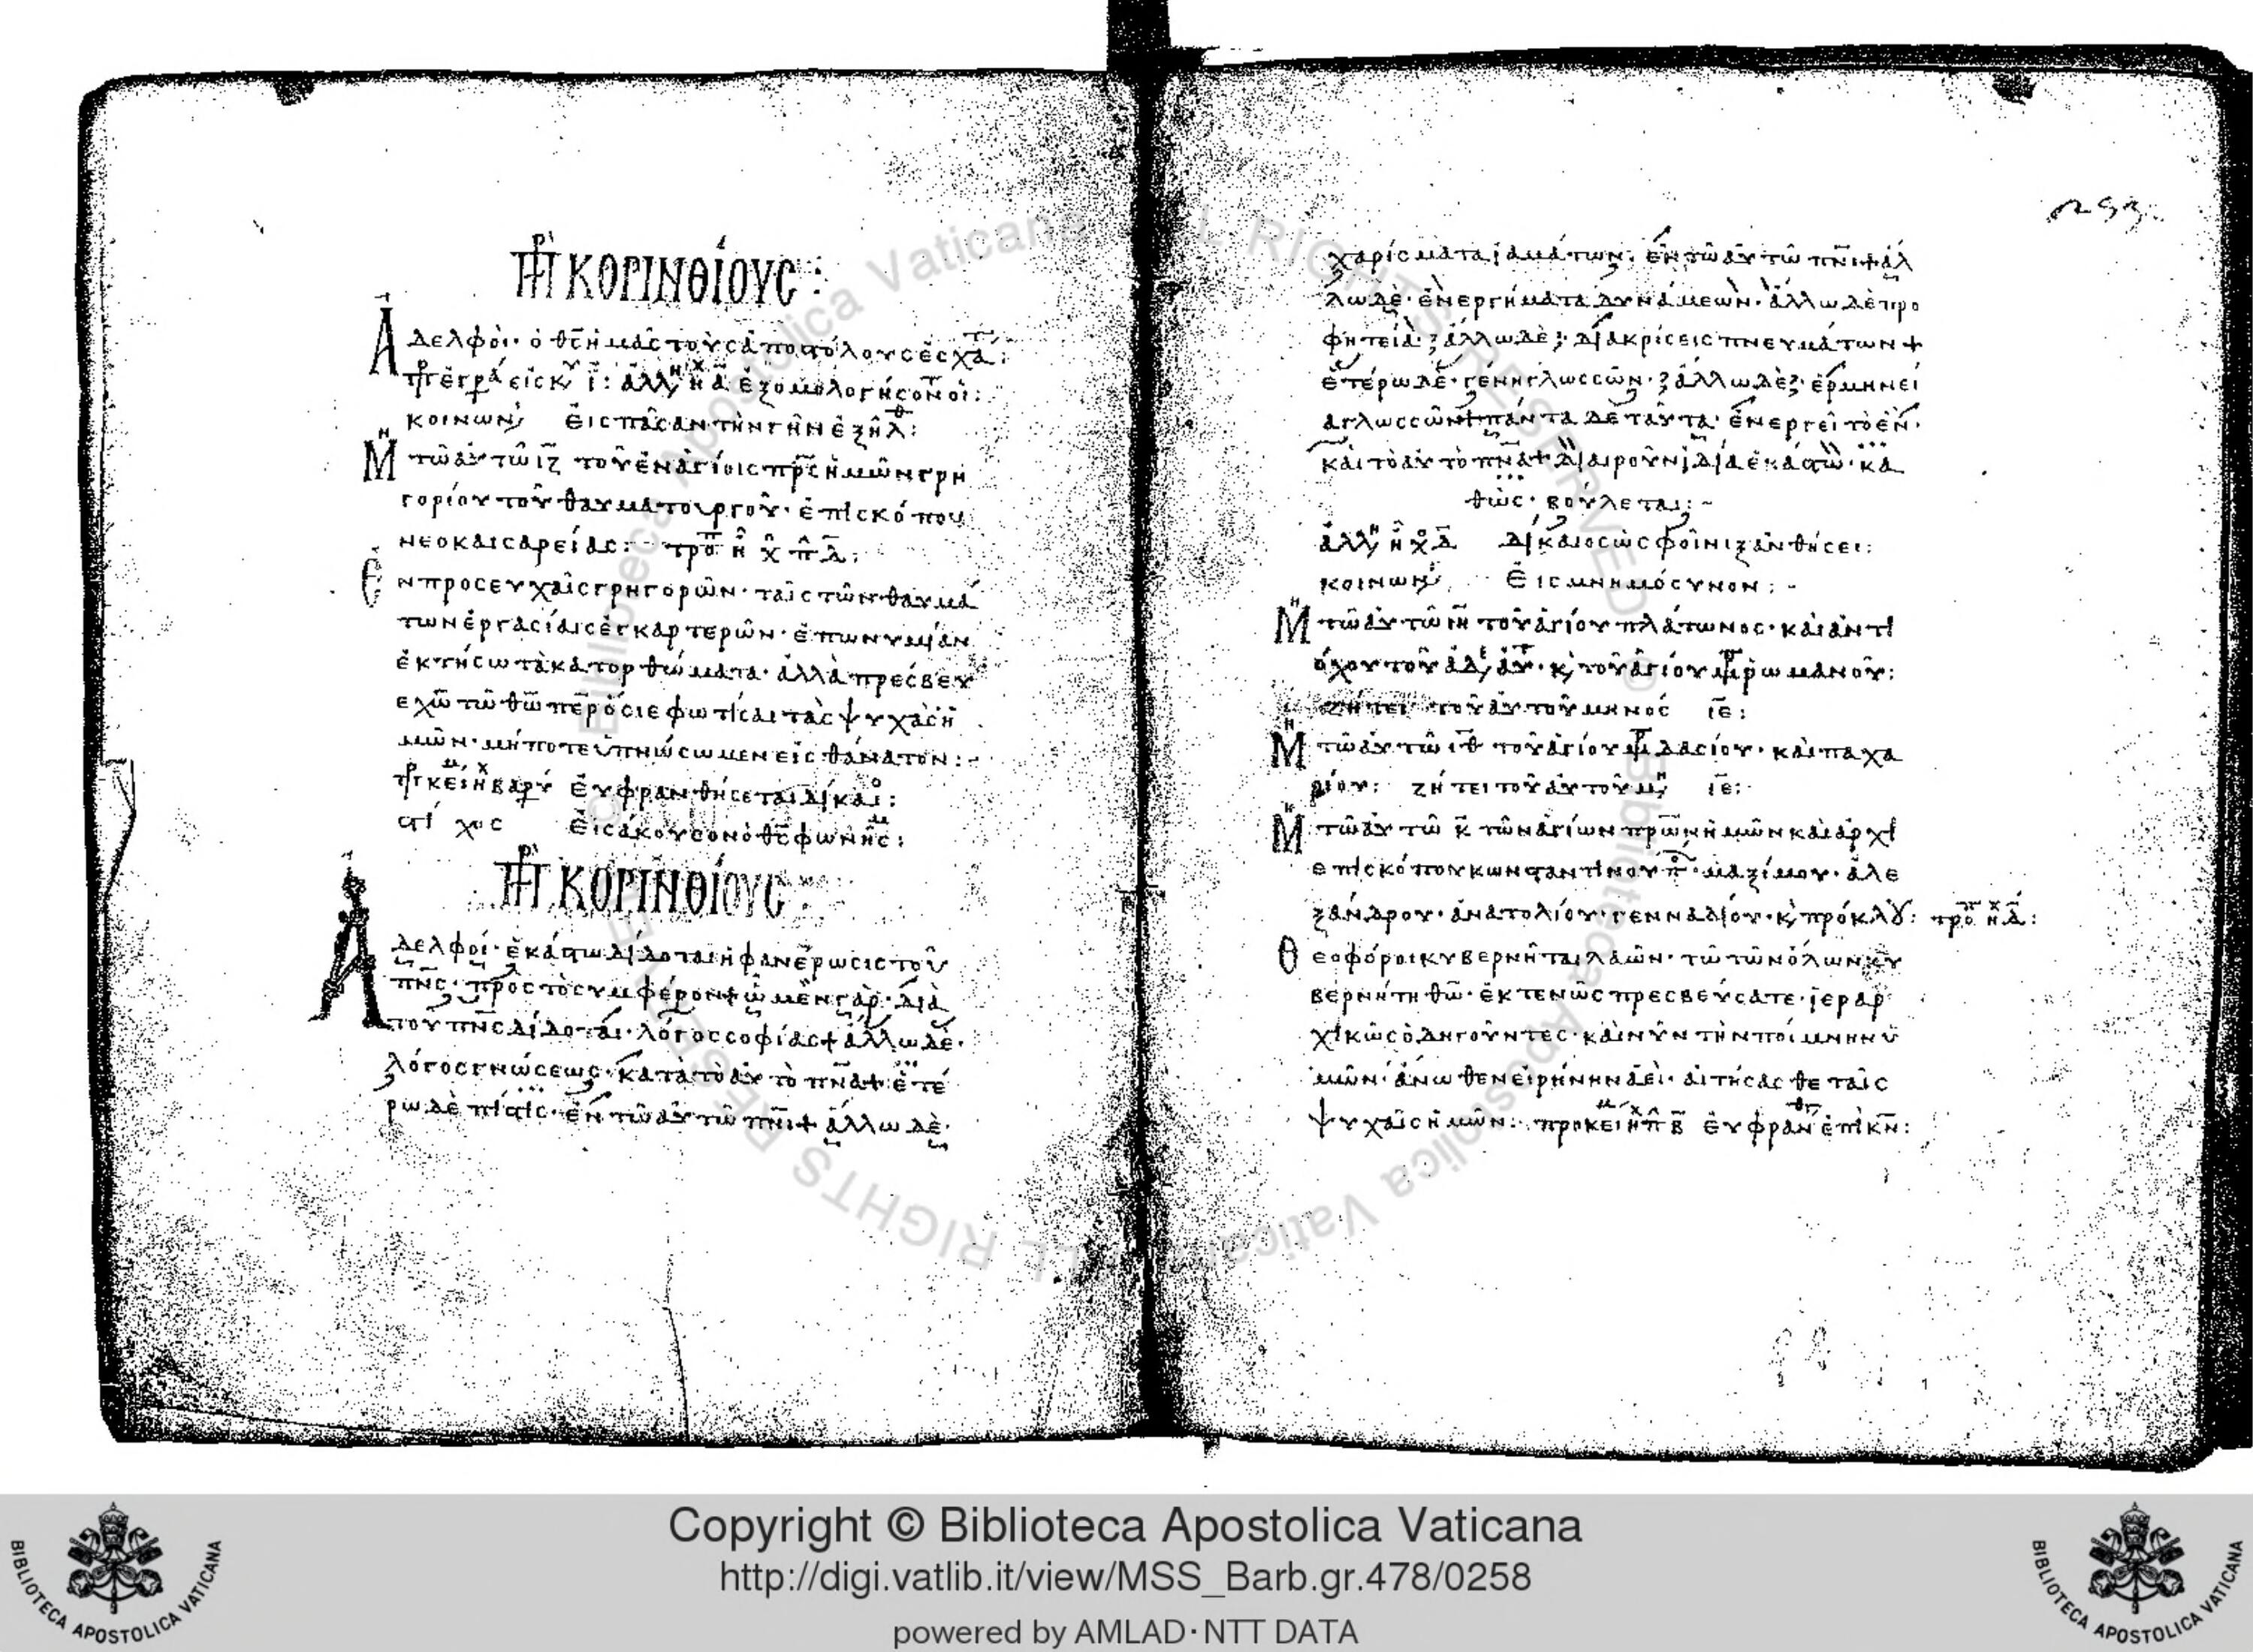 πρ κορινθίους:
Ἀδελφοὶ· ὁ θς ἡμᾶς τοὺς ἀποστόλους ἐσχά:
ἐξομολογήσον
κοινων εἰς πᾶσαν τὴν γῆν ἐξῆλθ:
Μη τῶ αὐτῶ ιζ τοῦ ἐν ἁγίοις πρς ἡμῶν γρη
γορίου τοῦ θαυματουργοῦ· ἐπισκόπου
νεοκαισαρείας:
Ἐν προσευχαῖς γρηγορῶν· ταῖς τῶν θαυμά
των ἐργασίαις ἐγκαρτερῶν· ἐπωνυμίαν
ἐκτήσω τὰ κατορθώματα· ἀλλὰ πρέσβευ
ε χω τῶ θω περ ὅσιε φωτίσαι τὰς ψυχὰς ἡ
μῶν· μήποτε ὑπνώσωμεν εἰς θάνατον:
εὐφρανθήσεται δίκαι:
στίχος εἰσάκουσον ὁ θς φωνης:
πρ κορινθίους:
Ἀδελφοί· ἑκάστω δίδοται ἡ φανέρωσις τοῦ
πνς· πρὸς τὸ συμφέρον+ ὧ μὲν γὰρ· διὰ
τοῦ πνς δίδοται· λόγος σοφίας+ ἄλλω δέ·
λόγος γνώσεως· κατὰ τὸ αὐτὸ πνα+ ἑτέ
ρω δὲ πίστις· ἐν τῶ αὐτῶ πνι+ ἄλλω δὲ·
χαρίσματα ἰαμάτων· ἐν τῶ αὐτῶ πνι+ ἄλ
λω δὲ· ἐνεργήματα δυνάμεων· ἄλλω δὲ προ
φητεία· ἄλλω δὲ· διακρίσεις πνευμάτων+
ἑτέρω δὲ· γένη γλωσσῶν· ἄλλω δὲ· ἑρμηνεί
α γλωσσῶν+ πάντα δὲ ταῦτα· ἐνεργεῖ τὸ ἓν·
καὶ τὸ αὐτὸ πνα+ διαιροῦν ἰδία ἑκάστω· κα
θὼς· βούλεται:
δίκαιος ὡς φοῖνιξ ἀνθήσει:
κοινων εἰς μνημόσυνον:
Μη τῶ αὐτῶ ιη τοῦ ἁγίου πλάτωνος· καὶ ἀντι
όχου τοῦ ἀδ αὐ· κ τοῦ ἁγίου ρωμανοῦ:
ζήτει τοῦ αὐτοῦ μηνός ιε:
Μη τῶ αὐτῶ ιθ τοῦ ἁγίου δασίου· καὶ παχα
ρίου: ζήτει τοῦ αὐτοῦ μη ιε:
Μη τῶ αὐτῶ κ τῶν ἁγίων πρων ἡμῶν καὶ ἀρχι
επισκόπου κωνσταντινουπ· μαξίμου· ἀλε
ξάνδρου· ἀνατολίου· γενναδίου· κ πρόκλου:
Θεοφόροι κυβερνῆται λαῶν· τῶ τῶν ὅλων κυ
βερνήτη θω· ἐκτενῶς πρεσβεύσατε· ἱεραρ
χικῶς ὁδηγοῦντες· καὶ νῦν τὴν ποίμνην ὑ
μῶν· ἄνωθεν εἰρήνην ἀεὶ· αἰτήσασθε ταῖς
ψυχαῖς ἡμῶν: προκει
Copyright © Biblioteca Apostolica Vaticana
http://digi.vatlib.it/view/MSS_Barb.gr.478/0258
powered by AMLAD·NTT DATA
BIBLIOTECA APOSTOLICA VATICANA
BIBLIOTECA APOSTOLICA VATICANA